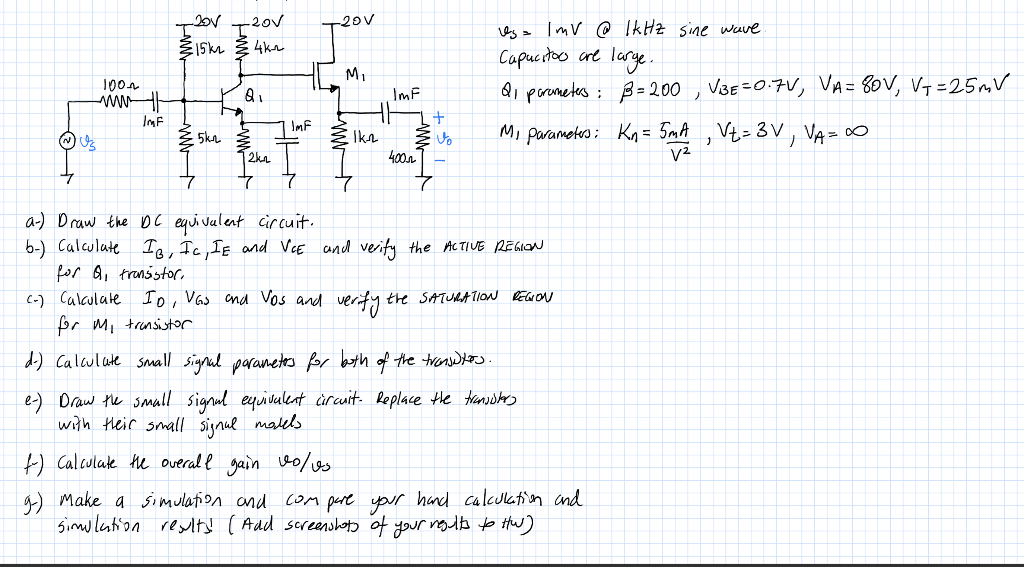 20V 20V 20V
15kΩ 4kΩ
100Ω
M1
Q1
1mF
1mF
+
vs
5kΩ
1mF
1kΩ
vo
2kΩ
400Ω
-
vs = 1mV @ 1kHz sine wave.
Capacitors are large.
Q1 parameters : β=200 , VBE=0.7V, VA=80V, VT=25mV
M1 parameters: Kn = 5mA/V² , Vt=3V , VA=∞
a-) Draw the DC equivalent circuit.
b-) Calculate IB, IC, IE and VCE and verify the ACTIVE REGION
for Q1 transistor.
c-) Calculate ID, VGS and VDS and verify the SATURATION REGION
for M1 transistor
d-) Calculate small signal parameters for both of the transistors.
e-) Draw the small signal equivalent circuit. Replace the transistors
with their small signal models
f-) Calculate the overall gain vo/vs
g-) Make a simulation and compare your hand calculation and
simulation results (Add screenshots of your results to HW)